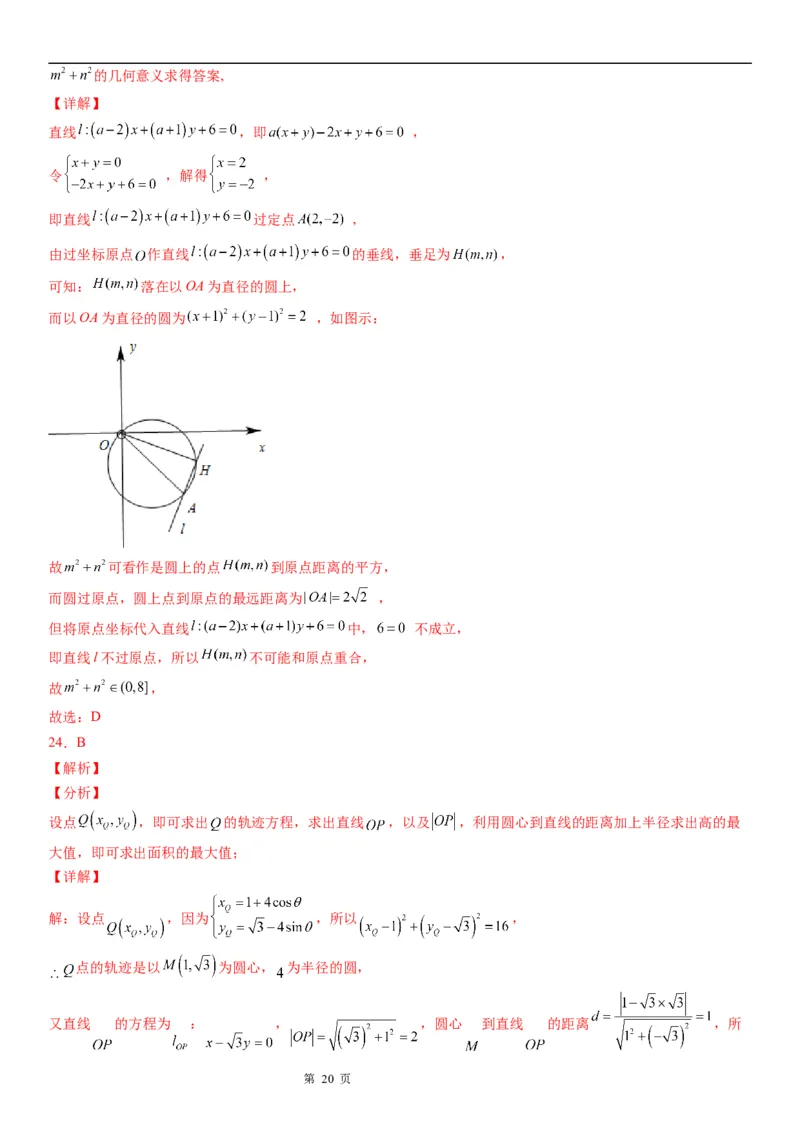 m²+n²的几何意义求得答案.
【详解】
直线l:(a−2)x+(a+1)y+6=0，即a(x+y)−2x+y+6=0，
令{x+y=0 −2x+y+6=0，解得{x=2 y=−2，
即直线l:(a−2)x+(a+1)y+6=0过定点A(2,−2)，
由过坐标原点O作直线l:(a−2)x+(a+1)y+6=0的垂线，垂足为H(m,n)，
可知：H(m,n)落在以OA为直径的圆上，
而以OA为直径的圆为(x+1)²+(y−1)²=2，如图示：
y
O
x
H
A
l
故m²+n²可看作是圆上的点H(m,n)到原点距离的平方，
而圆过原点，圆上点到原点的最远距离为|OA|=2 2，
但将原点坐标代入直线l:(a−2)x+(a+1)y+6=0中，6=0 不成立，
即直线l不过原点，所以H(m,n)不可能和原点重合，
故m²+n²∈(0,8]，
故选：D
24．B
【解析】
【分析】
设点Q(x_Q,y_Q)，即可求出Q的轨迹方程，求出直线OP，以及|OP|，利用圆心到直线的距离加上半径求出高的最
大值，即可求出面积的最大值；
【详解】
解：设点Q(x_Q,y_Q)，因为{x_Q=1+4cosθ y_Q= 3−4sinθ，所以(x_Q−1)²+(y_Q− 3)²=16，
∴Q点的轨迹是以M(1, 3)为圆心，4为半径的圆，
又直线OP的方程为l_OP：x− 3y=0，|OP|=√(( 3)²+1²)=2，圆心M到直线OP的距离d=|1− 3× 3|/√(1²+(− 3)²)=1，所
第 20 页